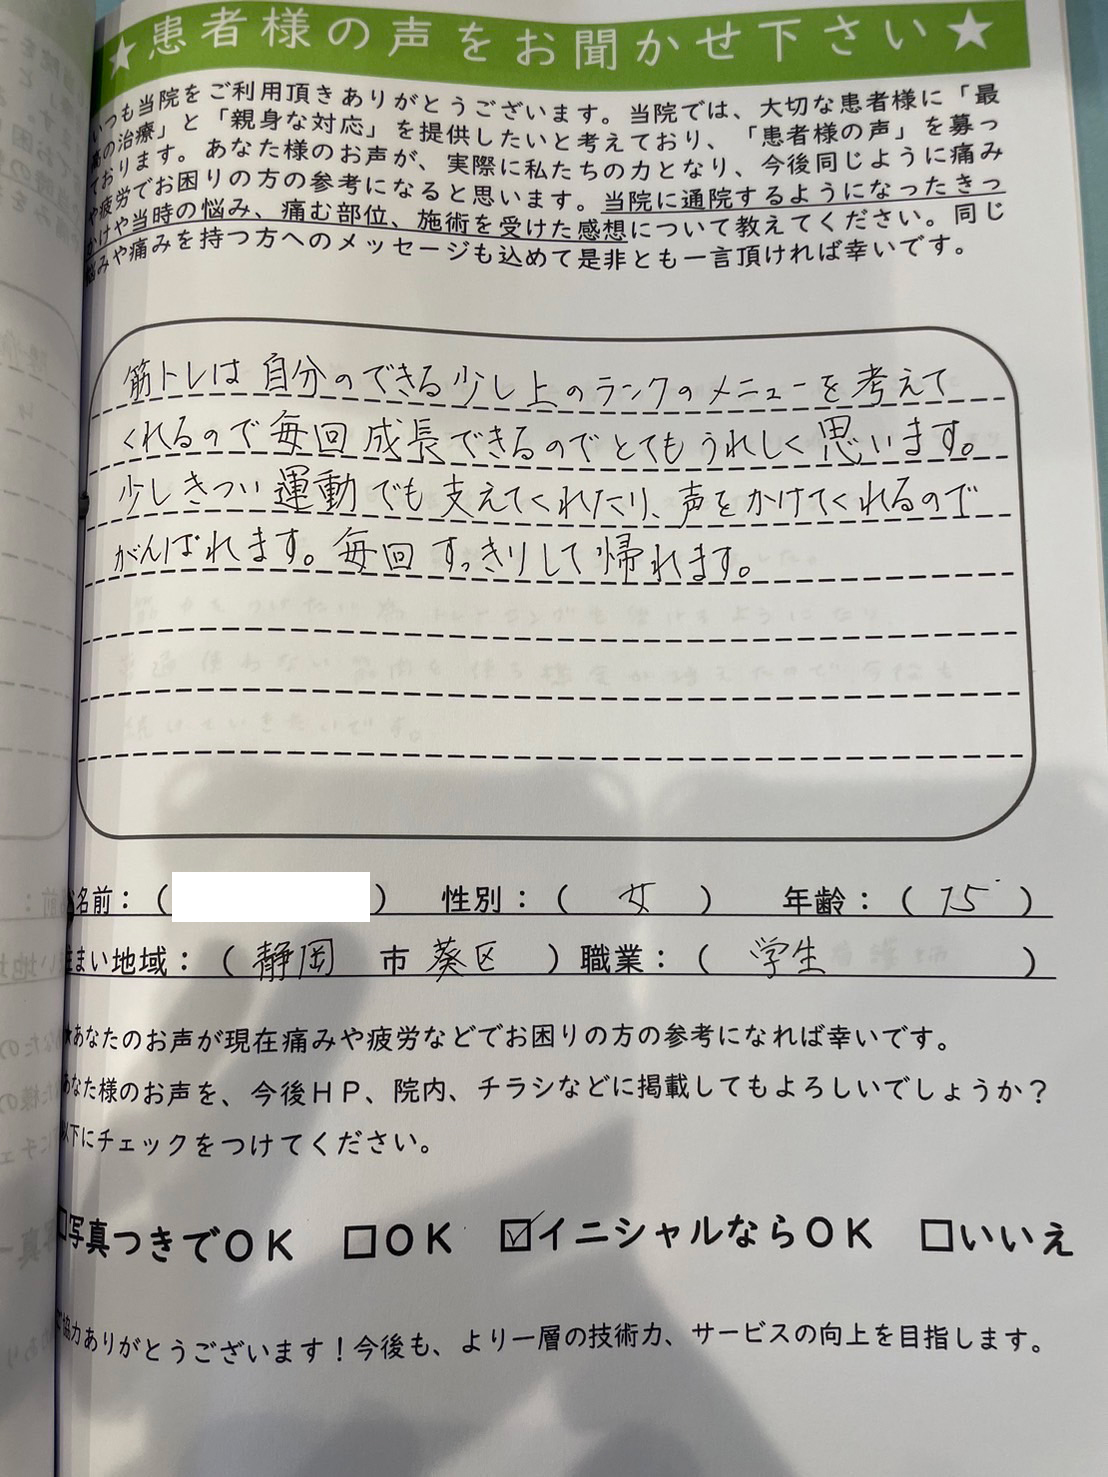 ★患者様の声をお聞かせ下さい★
いつも当院をご利用頂きありがとうございます。当院では、大切な患者様に「最
高の治療」と「親身な対応」を提供したいと考えており、「患者様の声」を募っ
ております。あなた様のお声が、実際に私たちの力となり、今後同じように痛み
や疲労でお困りの方の参考になると思います。当院に通院するようになったきっ
かけや当時の悩み、痛む部位、施術を受けた感想について教えてください。同じ
悩みや痛みを持つ方へのメッセージも込めて是非とも一言頂ければ幸いです。
筋トレは自分のできる少し上のランクのメニューを考えて
くれるので毎回成長できるのでとてもうれしく思います。
少しきつい運動でも支えてくれたり、声をかけてくれるので
がんばれます。毎回すっきりして帰れます。
名前：（ ） 性別：（ 女 ） 年齢：（ 15 ）
住まい地域：（ 静岡 市 葵区 ）職業：（ 学生 ）
★あなたのお声が現在痛みや疲労などでお困りの方の参考になれば幸いです。
あなた様のお声を、今後ＨＰ、院内、チラシなどに掲載してもよろしいでしょうか？
以下にチェックをつけてください。
□写真つきでＯＫ □ＯＫ ☑イニシャルならＯＫ □いいえ
協力ありがとうございます！今後も、より一層の技術力、サービスの向上を目指します。